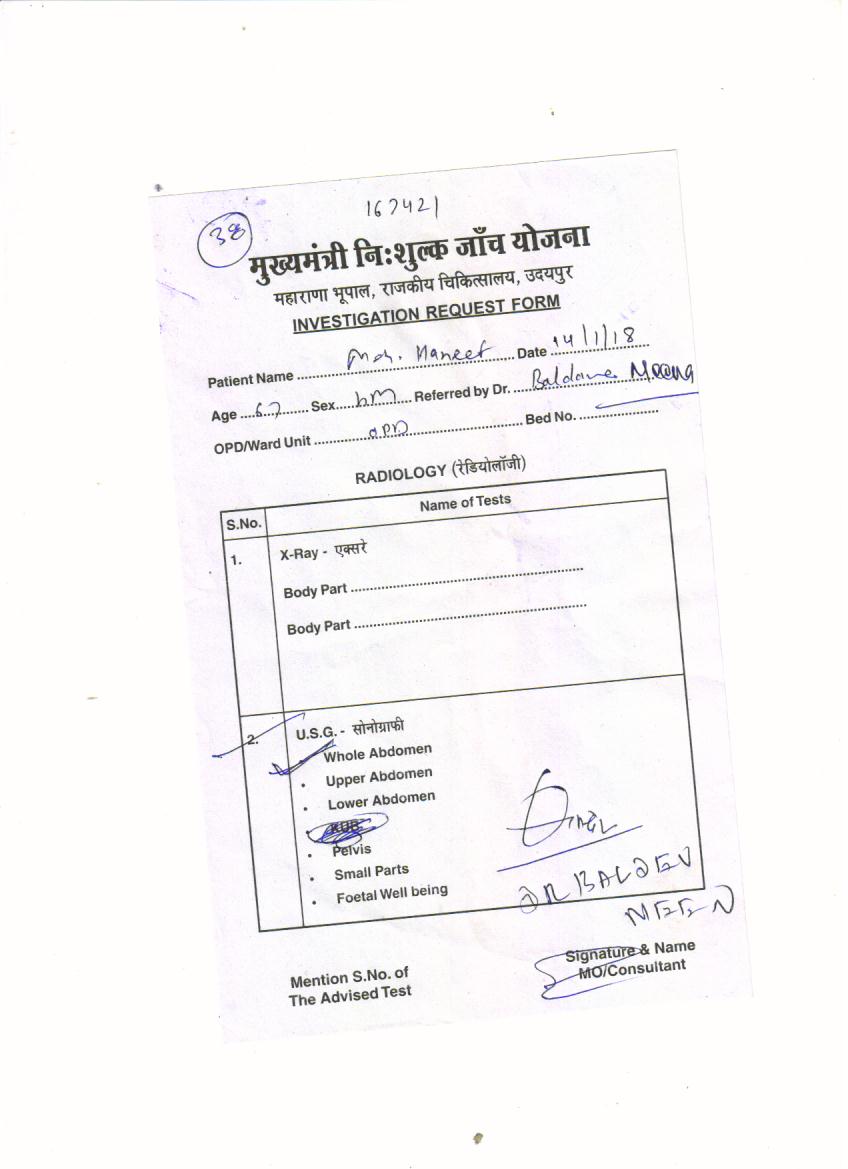 167421
38
मुख्यमंत्री निःशुल्क जाँच योजना
महाराणा भूपाल, राजकीय चिकित्सालय, उदयपुर
INVESTIGATION REQUEST FORM
Patient Name .......... Moh. Haneef .......... Date 14/1/18
Age .... 67 ........ Sex .... M .... Referred by Dr. .... Meena
OPD/Ward Unit .......... OPD .......... Bed No. ..........
RADIOLOGY (रेडियोलॉजी)
S.No. Name of Tests
1. X-Ray - एक्सरे
Body Part ..........
Body Part ..........
2. U.S.G. - सोनोग्राफी
Whole Abdomen
• Upper Abdomen
• Lower Abdomen
• KUB
• Pelvis
• Small Parts
• Foetal Well being
DR BALDEV
MEENA
Signature & Name
MO/Consultant
Mention S.No. of
The Advised Test